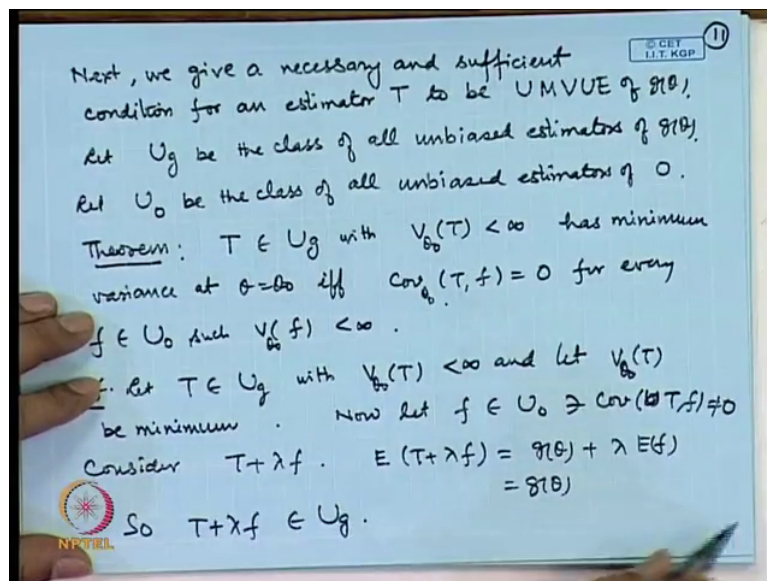 © CET
I.I.T. KGP
11
Next, we give a necessary and sufficient
condition for an estimator T to be UMVUE of g(θ).
Let U_g be the class of all unbiased estimators of g(θ).
Let U_0 be the class of all unbiased estimators of 0.
Theorem: T ∈ U_g with V_θ0(T) < ∞ has minimum
variance at θ=θ0 iff Cov_θ0(T, f) = 0 for every
f ∈ U_0 such V_θ0(f) < ∞.
Let T ∈ U_g with V_θ0(T) < ∞ and let V_θ0(T)
be minimum. Now let f ∈ U_0 ∋ Cov(T, f) ≠ 0
Consider T+λf. E(T+λf) = g(θ) + λ E(f)
= g(θ)
So T+λf ∈ U_g.
NPTEL